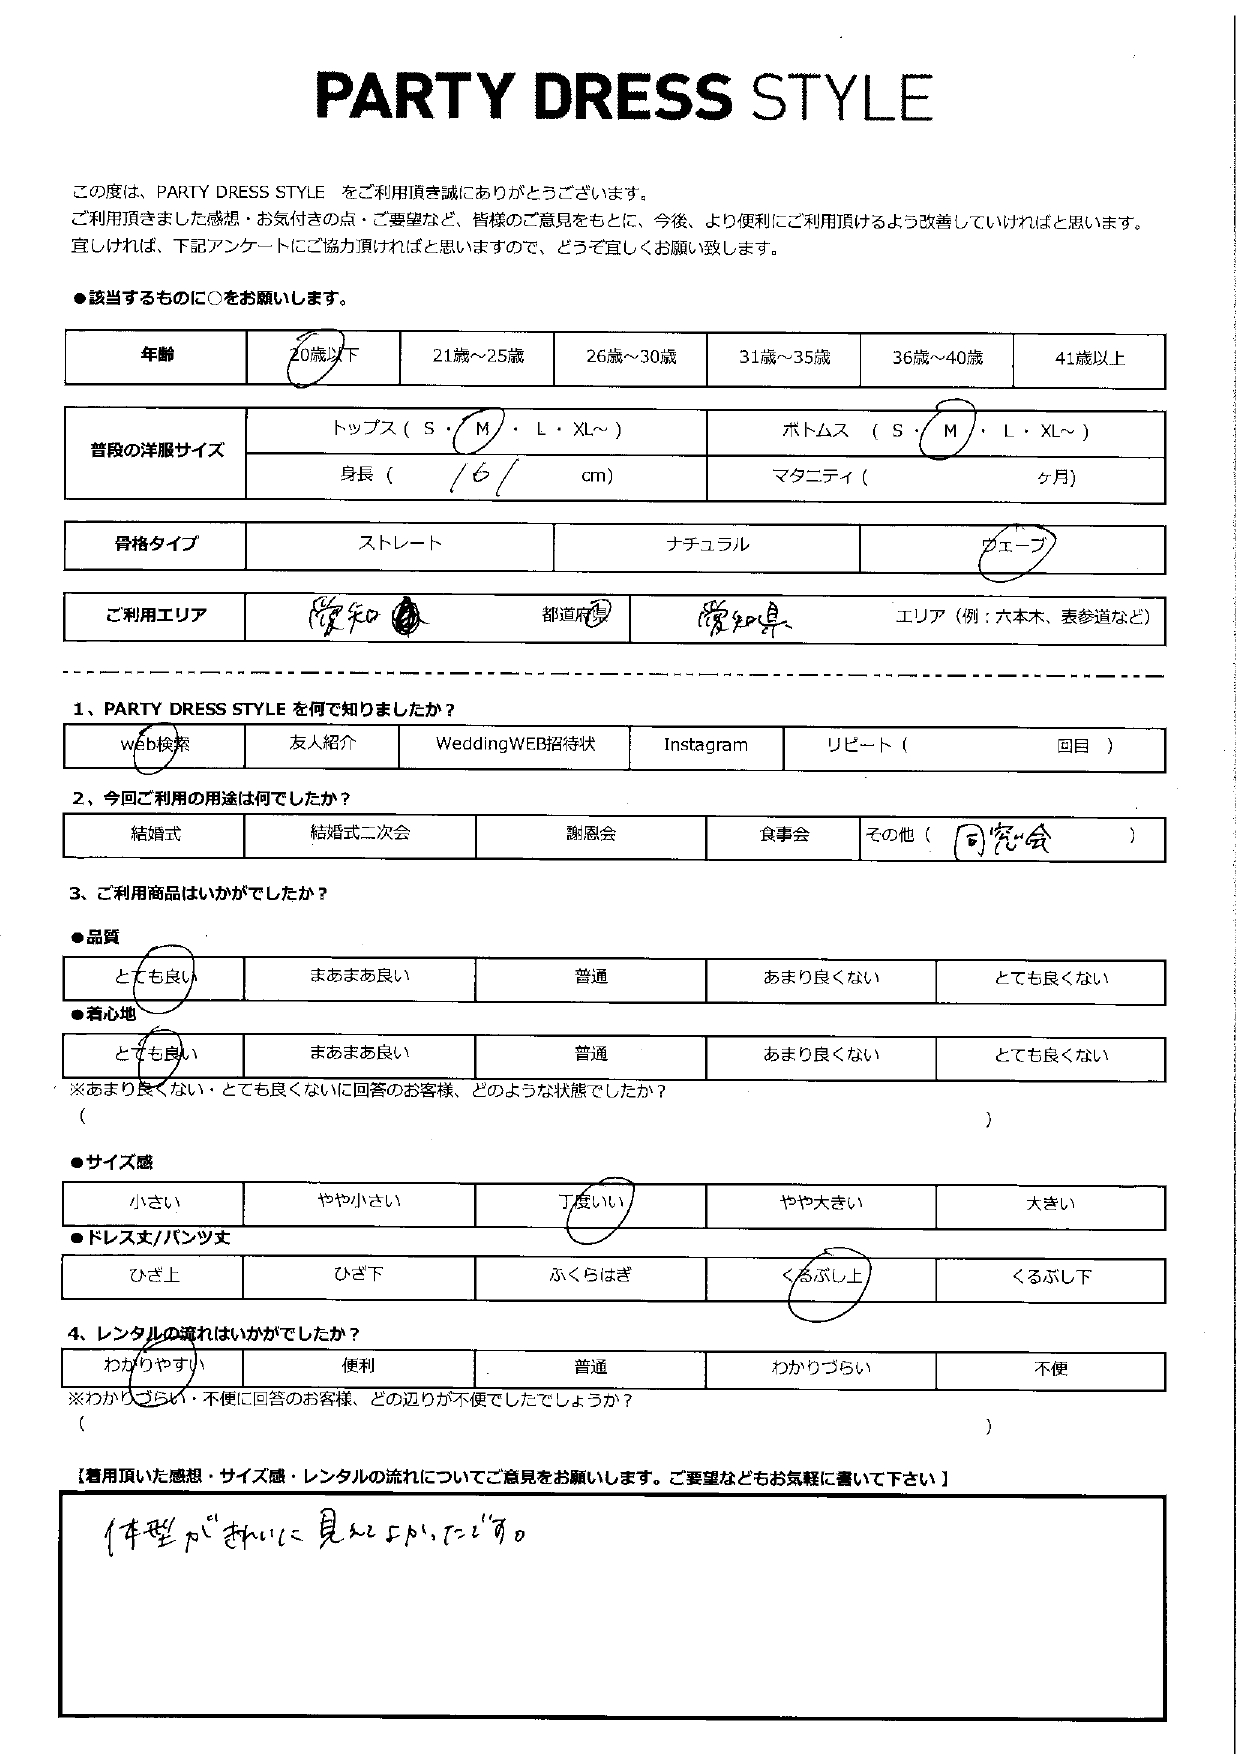 PARTY DRESS STYLE
この度は、PARTY DRESS STYLE をご利用頂き誠にありがとうございます。
ご利用頂きました感想・お気付きの点・ご要望など、皆様のご意見をもとに、今後、より便利にご利用頂けるよう改善していければと思います。
宜しければ、下記アンケートにご協力頂ければと思いますので、どうぞ宜しくお願い致します。
●該当するものに○をお願いします。
年齢 20歳以下 21歳～25歳 26歳～30歳 31歳～35歳 36歳～40歳 41歳以上
普段の洋服サイズ トップス ( S ・ M ・ L ・ XL～ ) ボトムス ( S ・ M ・ L ・ XL～ )
身長 ( 161 cm) マタニティ ( ヶ月)
骨格タイプ ストレート ナチュラル ウェーブ
ご利用エリア 愛知 都道府県 愛知県 エリア (例：六本木、表参道など)
1、PARTY DRESS STYLE を何で知りましたか？
web検索 友人紹介 WeddingWEB招待状 Instagram リピート ( 回目 )
2、今回ご利用の用途は何でしたか？
結婚式 結婚式二次会 謝恩会 食事会 その他 ( 同窓会 )
3、ご利用商品はいかがでしたか？
●品質
とても良い まあまあ良い 普通 あまり良くない とても良くない
●着心地
とても良い まあまあ良い 普通 あまり良くない とても良くない
※あまり良くない・とても良くないに回答のお客様、どのような状態でしたか？
( )
●サイズ感
小さい やや小さい 丁度いい やや大きい 大きい
●ドレス丈/パンツ丈
ひざ上 ひざ下 ふくらはぎ くるぶし上 くるぶし下
4、レンタルの流れはいかがでしたか？
わかりやすい 便利 普通 わかりづらい 不便
※わかりづらい・不便に回答のお客様、どの辺りが不便でしたでしょうか？
( )
【着用頂いた感想・サイズ感・レンタルの流れについてご意見をお願いします。ご要望などもお気軽に書いて下さい】
体型がきれいに見えてよかったです。